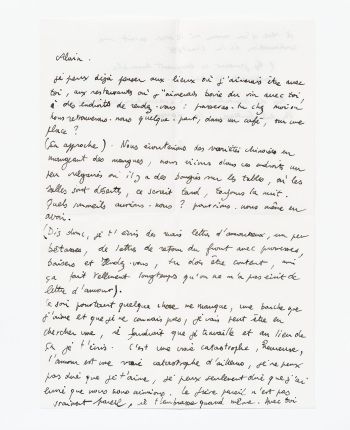 Alain.
je peux déjà penser aux lieux où j'aimerais être avec
toi, aux restaurants où j'aimerais boire du vin avec toi,
à des endroits de rendez-vous : passeras-tu chez moi ou
nous retrouverons-nous quelque-part, dans un café, sur une
place ?
(ça approche). Nous écouterions des variétés chinoises en
mangeant des mangues, nous irions dans ces endroits un
peu vulgaires où il y a des bougies sur les tables, où les
salles sont désertes, ce serait tard, toujours la nuit.
Quels sommeils aurions-nous ? pourrions-nous même en
avoir.
(Dis donc, je t'écris des vraies lettres d'amoureux, un peu
bêtasses, de lettre de retour du front avec promesses,
baisers et rendez-vous, tu dois être content, moi
ça fait tellement longtemps qu'on ne m'a pas écrit de
lettre d'amour).
Ce soir pourtant quelque chose me manque, une bouche que
j'aime et que je ne connais pas, je vais peut être en
chercher une, il faudrait que je travaille et au lieu de
ça je t'écris. C'est une vraie catastrophe,
l'amour est une vraie catastrophe d'ailleurs, je ne peux
pas dire que je t'aime, je peux seulement dire que j'ai
envie que nous nous aimions. Le
vraiment pareil, il t'embrasse quand même. Avec toi